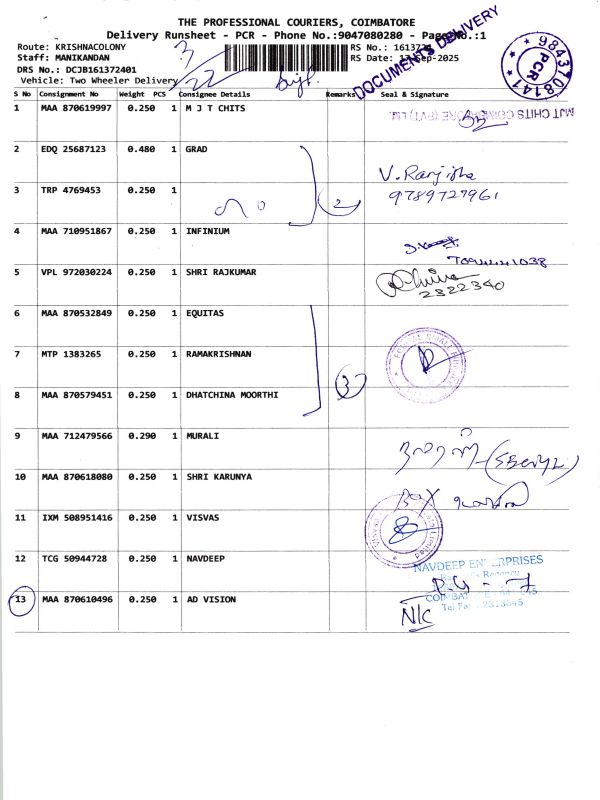 THE PROFESSIONAL COURIERS, COIMBATORE
Delivery Runsheet - PCR - Phone No.:9047080280 - Page No.:1
Route: KRISHNACOLONY RS No.:
Staff: MANIKANDAN RS Date: Sep-2025
DRS No.: DCJB161372401
Vehicle: Two Wheeler Delivery
3
22
DOCUMENTS DELIVERY
9843708141
PCR
S No Consignment No Weight PCS Consignee Details Remarks Seal & Signature
1 MAA 870619997 0.250 1 M J T CHITS
MJT CHITS (PVT) Ltd.
2 EDQ 25687123 0.480 1 GRAD
V. Ranjitha
3 TRP 4769453 0.250 1
2 9789727961
4 MAA 710951867 0.250 1 INFINIUM
5 VPL 972030224 0.250 1 SHRI RAJKUMAR
2322340
6 MAA 870532849 0.250 1 EQUITAS
7 MTP 1383265 0.250 1 RAMAKRISHNAN
3
8 MAA 870579451 0.250 1 DHATCHINA MOORTHI
9 MAA 712479566 0.290 1 MURALI
10 MAA 870618080 0.250 1 SHRI KARUNYA
11 IXM 508951416 0.250 1 VISVAS
Limited
12 TCG 50944728 0.250 1 NAVDEEP
NAVDEEP ENTERPRISES
13 MAA 870610496 0.250 1 AD VISION
Tel Fax : 2313645
N/C